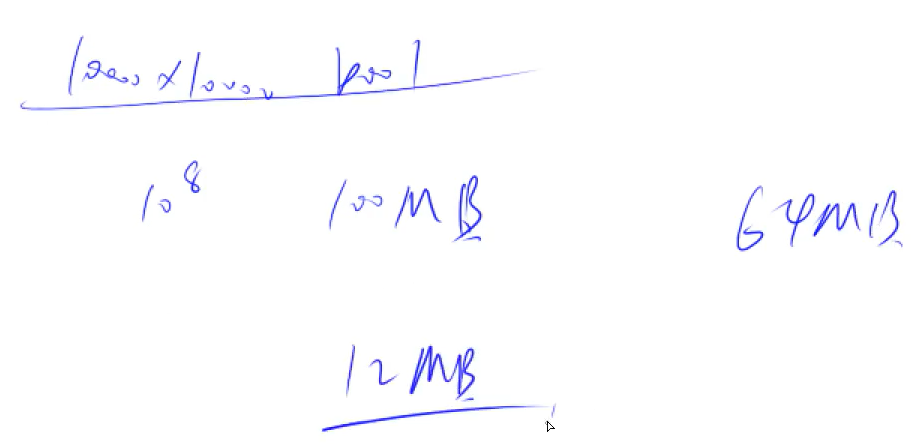 10000 x 10000 bool
10^8 100MB 64MB
12MB